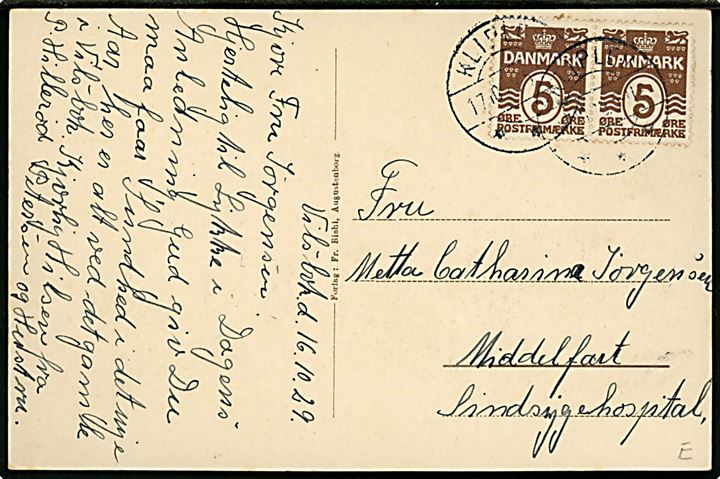 Vils-bøl. d. 16.10.29.
Kjære Fru Jørgensen!
Hjertelig til Lykke i Dagens
Anledning, Gud giv Du
maa faar Sundhed i det nye
Aar, her er alt ved det gamle
i Vils-bøl. Kjærlig Hilsen fra
P. Hillerød Petersen og Hustru.
Forlag: Fr. Biehl, Augustenborg.
KLIPLEV
17.
DANMARK
5
ØRE ØRE
POSTFRIMÆRKE
DANMARK
5
ØRE ØRE
POSTFRIMÆRKE
Fru
Metta Catharina Jörgensen
Middelfart
Sindsygehospital,
E